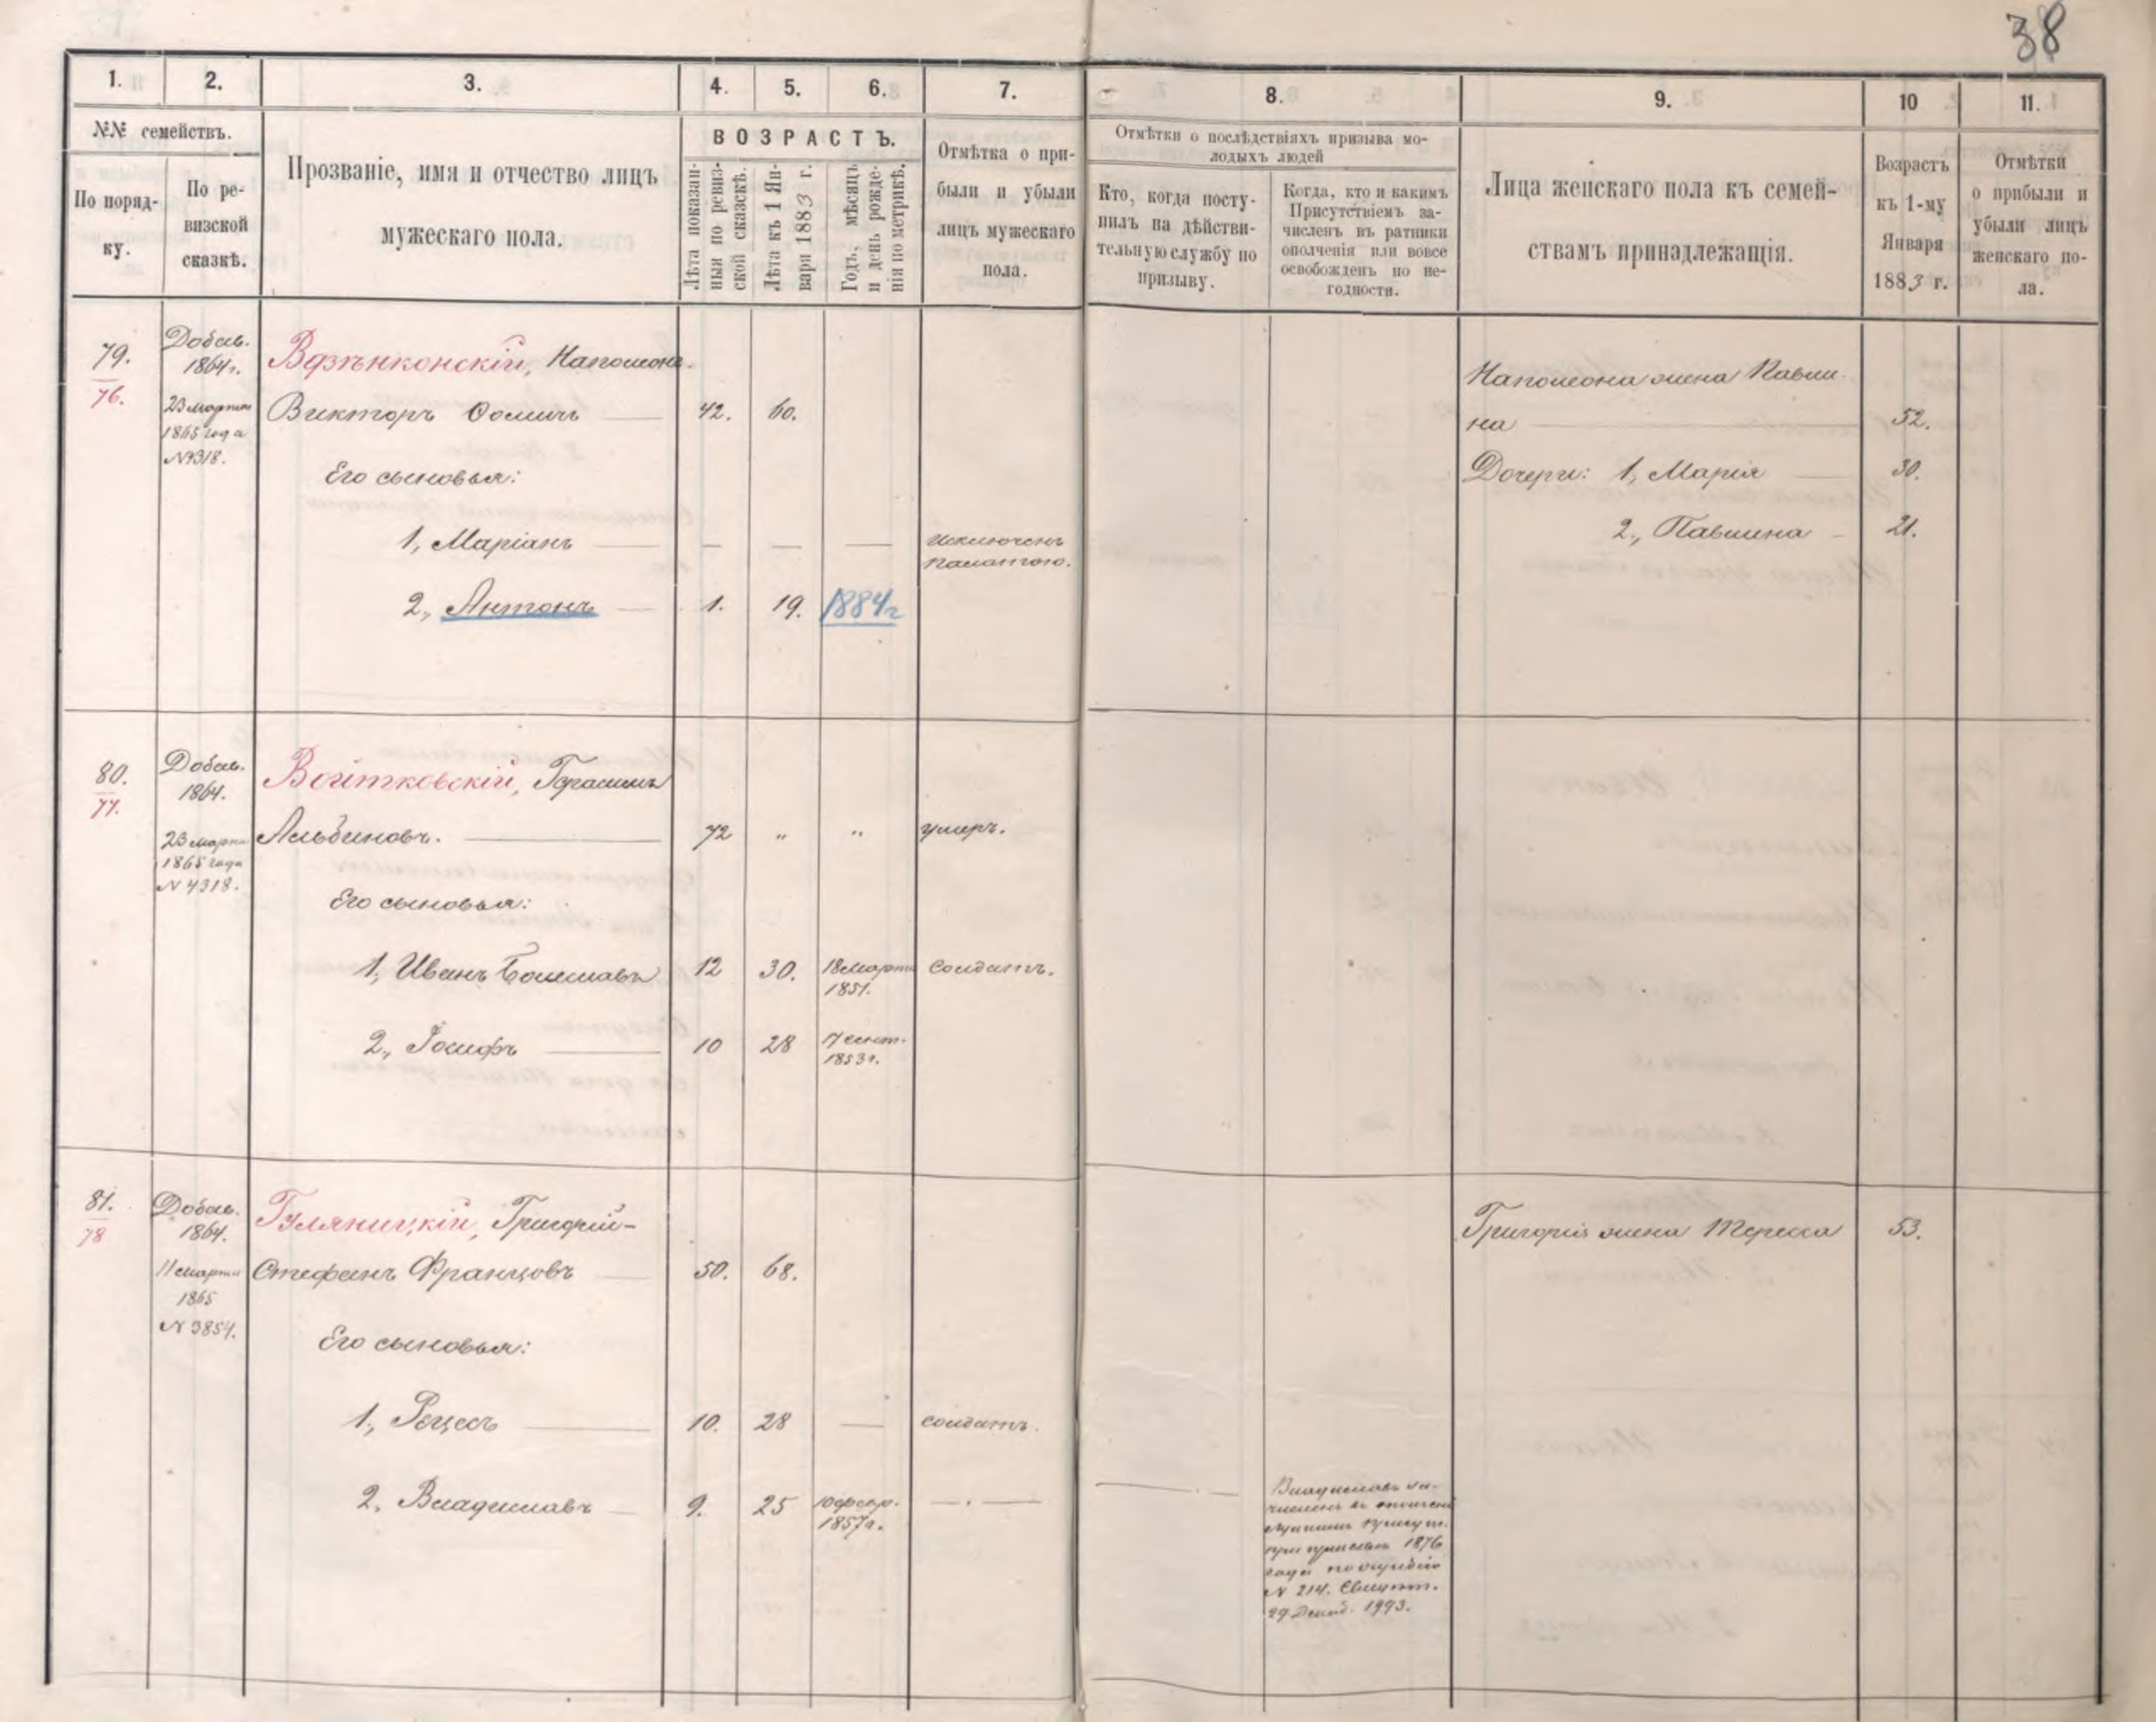 38
1. 2. 3. 4. 5. 6. 7. 8. 9. 10 11.
№№ семействъ.
По поряд-
ку.
По ре-
визской
сказкѣ.
Прозваніе, имя и отчество лицъ
мужескаго пола.
ВОЗРАСТЪ.
Лѣта показан-
ныя по ревиз-
ской сказскѣ.
Лѣта къ 1 Ян-
варя 1883 г.
Годъ, мѣсяцъ
и день рожде-
нія по метрикѣ.
Отмѣтка о при-
были и убыли
лицъ мужескаго
пола.
Отмѣтки о послѣдствіяхъ призыва мо-
лодыхъ людей
Кто, когда посту-
пилъ на дѣйстви-
тельную службу по
призыву.
Когда, кто и какимъ
Присутствіемъ за-
численъ въ ратники
ополченія или вовсе
освобожденъ по не-
годности.
Лица женскаго пола къ семей-
ствамъ принадлежащія.
Возрастъ
къ 1-му
Января
1883 г.
Отмѣтки
о прибыли и
убыли лицъ
женскаго по-
ла.
79.
76.
Добав.
1864г.
23 марта
1865 года
Вдзѣнконскій, Наполеонъ-
Викторъ Осипъ 42. 60.
Его сыновья:
1, Маріанъ — — — Исключенъ
палатою.
2, Антонъ 1. 19. 1884г
Наполеона жена Павли-
на 52.
Дочери: 1, Марія 30.
2, Павлина 21.
80.
77.
Добав.
1864.
23 марта
1865 года
N 4318.
Войтковскій, Герасимъ
Альбиновъ. 72 " " умеръ.
Его сыновья:
1, Иванъ Болеславъ 12 30. 18 марта
1851. солдатъ.
2, Іосифъ 10 28 17 сент.
1853г.
81.
78
Добав.
1864.
11 марта
1865
N 3854.
Гуляницкій, Григорій-
Стефанъ Францовъ 50. 68.
Его сыновья:
1, 10. 28 — солдатъ.
2, Владиславъ 9. 25 10 февр.
1857г.
Григорія жена Тересса 53.
Владиславъ за-
численъ въ
1876
года по жребію
N 214. Свидѣт.
29 Декаб.